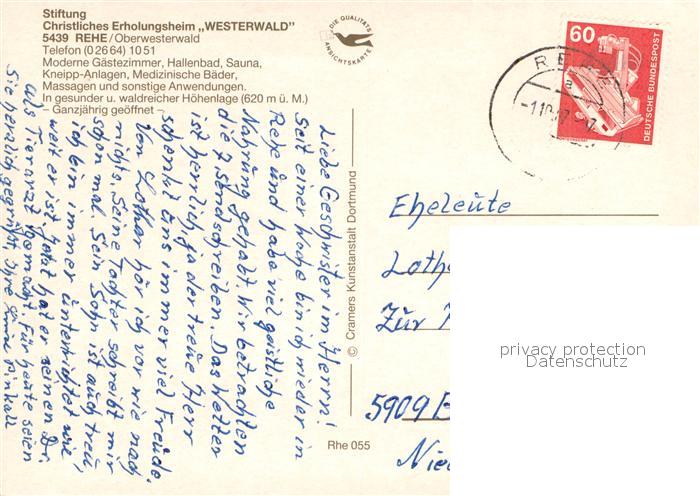 Stiftung
Christliches Erholungsheim „WESTERWALD"
5439 REHE/Oberwesterwald
Telefon (0 26 64) 10 51
Moderne Gästezimmer, Hallenbad, Sauna,
Kneipp-Anlagen, Medizinische Bäder,
Massagen und sonstige Anwendungen.
In gesunder u. waldreicher Höhenlage (620 m ü. M.)
– Ganzjährig geöffnet –
DIE QUALITÄTS
ANSICHTSKARTE
60
DEUTSCHE BUNDESPOST
REHE
a
Liebe Geschwister im Herrn!
Seit einer Woche bin ich wieder in
Rehe und habe viel geistliche
Nahrung gehabt. Wir betrachten
die 7 Sendschreiben. Das Wetter
ist herrlich, ja der treue Herr
schenkt uns immer viel Freude.
Von Lothar hör ich vor wie nach
nichts. Seine Tochter schreibt mir
schon mal. Sein Sohn ist auch treu,
ich bin immer unterrichtet wie,
weit er ist, jetzt hat er seinen Dr.
als Tierarzt gemacht. Für heute seien
Sie herzlich gegrüßt Ihre
© Cramers Kunstanstalt Dortmund
Rhe 055
Eheleute
Loth
Zur
5909 B
Nied
privacy protection
Datenschutz